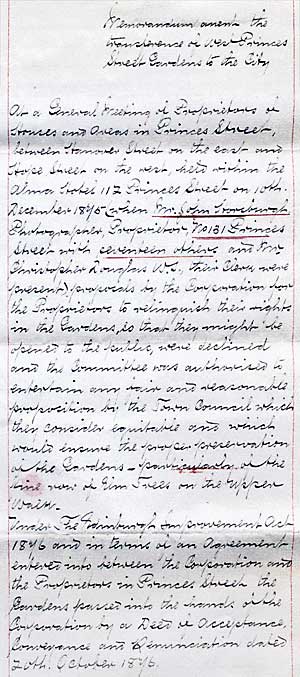 Memorandum anent the
transference of West Princes
Street Gardens to the City
At a General Meeting of Proprietors of
Houses and Areas in Princes Street,
between Hanover Street on the east and
Hope Street on the west, held within the
Alma Hotel 112 Princes Street on 10th.
December 1875 (when Mr. John Horsburgh
Photographer Proprietor, No 131 Princes
Street with seventeen others and Mr
Christopher Douglas W.S. their Clerk were
present) proposals by the Corporation for
the Proprietors to relinquish their rights
in the Gardens, so that they might be
opened to the public, were declined
and the Committee was authorised to
entertain any fair and reasonable
proposition by the Town Council which
they consider equitable and which
would ensure the proper preservation
of the Gardens – particularly of the
fine row of Elm Trees on the Upper
Walk.
Under The Edinburgh Improvement Act
1876 and in terms of an Agreement
entered into between the Corporation and
the Proprietors in Princes Street the
Gardens passed into the hands of the
Corporation by a Deed of Acceptance,
Conveyance and Renunciation dated
20th. October 1876.